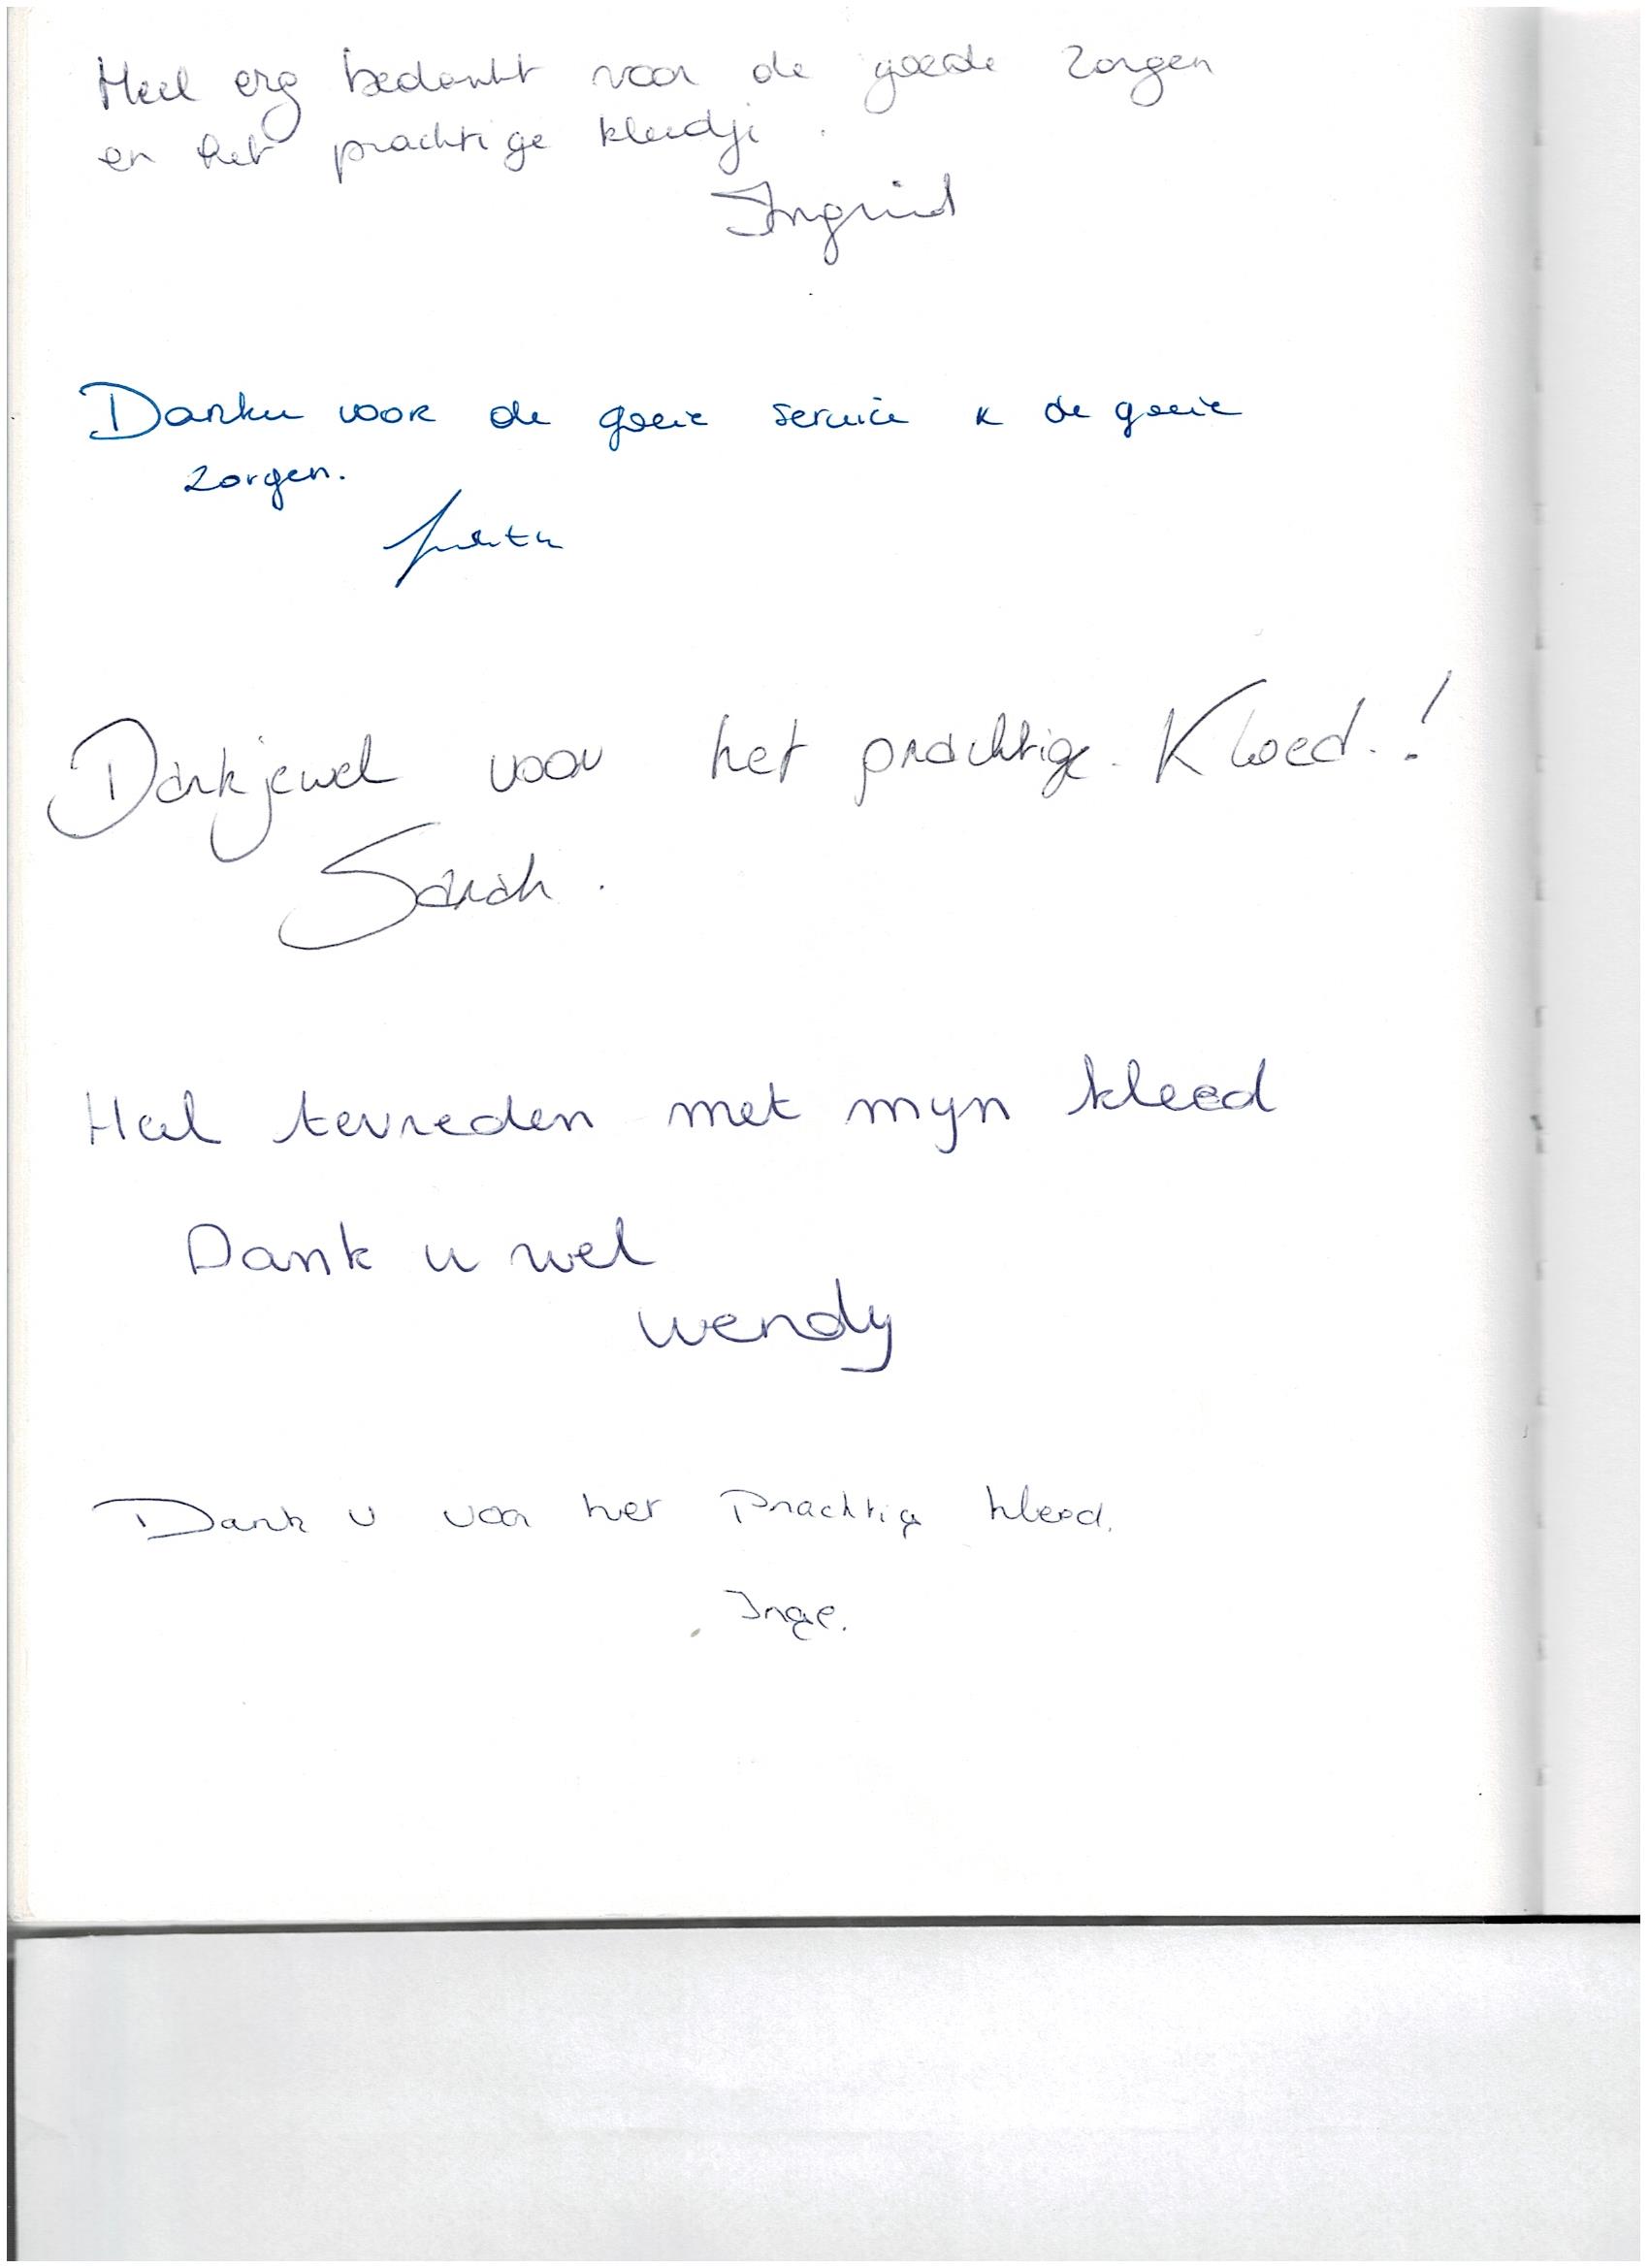 Heel erg bedankt voor de goede zorgen
en het prachtige kleedje.
Ingrid
Danku voor de goeie service & de goeie
zorgen.
Judith
Dankjewel voor het prachtige Kleed.!
Sarah.
Heel tevreden met mijn kleed
Dank u wel
Wendy
Dank u voor het Prachtig kleed.
Inge.